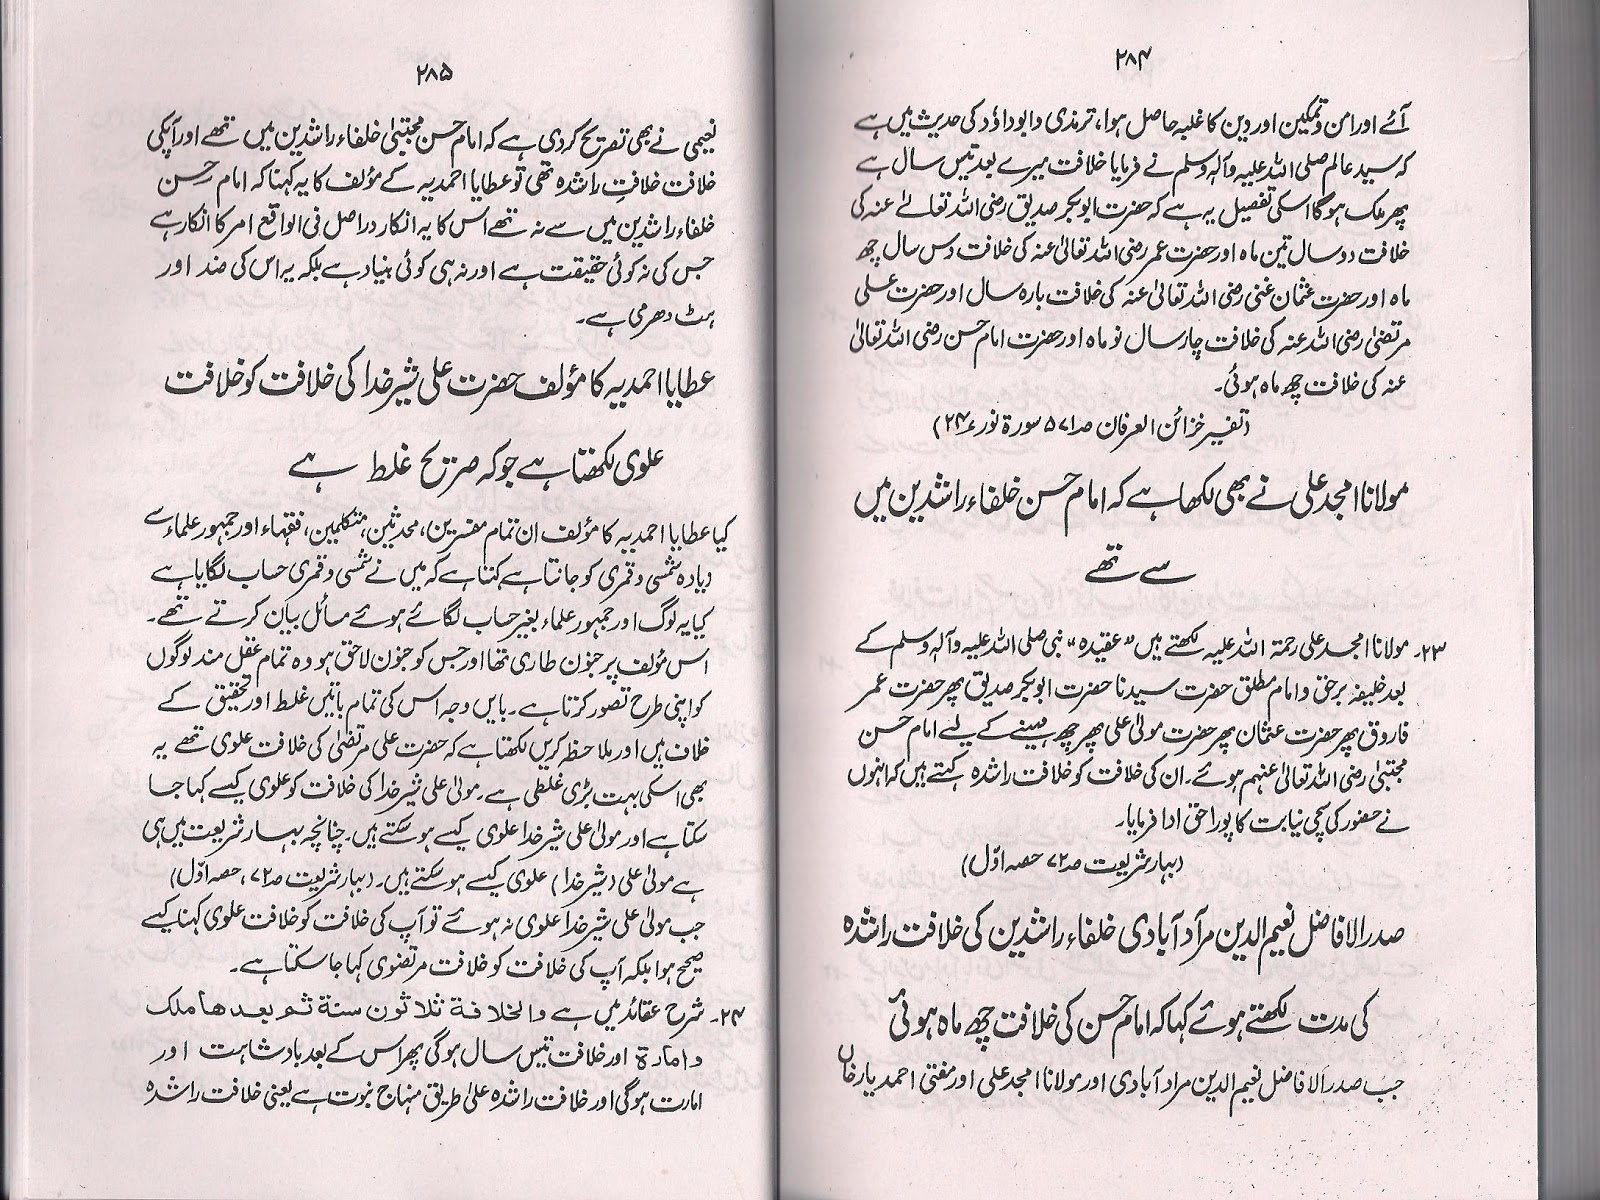 ۲۸۴
آئے اور امن و تمکین اور دین کا غلبہ حاصل ہوا، ترمذی و ابوداؤد کی حدیث میں ہے
کہ سید عالم صلی اللہ علیہ وآلہ وسلم نے فرمایا خلافت میرے بعد تیس سال ہے
پھر ملک ہوگا اسکی تفصیل یہ ہے کہ حضرت ابوبکر صدیق رضی اللہ تعالےٰ عنہ کی
خلافت دو سال تین ماہ اور حضرت عمر رضی اللہ تعالیٰ عنہ کی خلافت دس سال چھ
ماہ اور حضرت عثمان غنی رضی اللہ تعالیٰ عنہ کی خلافت بارہ سال اور حضرت علی
مرتضیٰ رضی اللہ عنہ کی خلافت چار سال نو ماہ اور حضرت امام حسن رضی اللہ تعالیٰ
عنہ کی خلافت چھ ماہ ہوئی۔
(تفسیر خزائن العرفان صہ۵۷۱ سورۃ نور ۲۴)
مولانا امجد علی نے بھی لکھا ہے کہ امام حسن خلفاء راشدین میں
سے تھے
۲۳۔ مولانا امجد علی رحمۃ اللہ علیہ لکھتے ہیں “عقیدہ” نبی صلی اللہ علیہ وآلہ وسلم کے
بعد خلیفہ برحق و امام مطلق حضرت سیدنا حضرت ابوبکر صدیق پھر حضرت عمر
فاروق پھر حضرت عثمان پھر حضرت مولیٰ علی پھر چھ مہینے کے لیے امام حسن
مجتبیٰ رضی اللہ تعالیٰ عنہم ہوئے۔ ان کی خلافت کو خلافت راشدہ کہتے ہیں کہ انہوں
نے حضور کی سچی نیابت کا پورا حق ادا فرمایا۔
(بہار شریعت صہ۷۲ حصہ اوّل)
صدر الافاضل نعیم الدین مراد آبادی خلفاء راشدین کی خلافت راشدہ
کی مدت لکھتے ہوئے کہا کہ امام حسن کی خلافت چھ ماہ ہوئی
جب صدر الافاضل نعیم الدین مراد آبادی اور مولانا امجد علی اور مفتی احمد یار خاں
۲۸۵
نعیمی نے بھی تصریح کردی ہے کہ امام حسن مجتبیٰ خلفاء راشدین میں تھے اور آپکی
خلافت خلافتِ راشدہ تھی تو عطایا احمدیہ کے مؤلف کا یہ کہنا کہ امام حسن
خلفاء راشدین میں سے نہ تھے اس کا یہ انکار دراصل فی الواقع امر کا انکار ہے
جس کی نہ کوئی حقیقت ہے اور نہ ہی کوئی بنیاد ہے بلکہ یہ اس کی ضد اور
ہٹ دھرمی ہے۔
عطایا احمدیہ کا مؤلف حضرت علی شیر خدا کی خلافت کو خلافت
علوی لکھتا ہے جو کہ صریح غلط ہے
کیا عطایا احمدیہ کا مؤلف ان تمام مفسرین، محدثین، متکلمین، فقہاء اور جمہور علماء سے
زیادہ شمسی و قمری کو جانتا ہے کہتا ہے کہ میں نے شمسی و قمری حساب لگایا ہے
کیا یہ لوگ اور جمہور علماء بغیر حساب لگائے ہوئے مسائل بیان کرتے تھے۔
اس مؤلف پر جنون طاری تھا اور جس کو جنون لاحق ہو وہ تمام عقل مند لوگوں
کو اپنی طرح تصور کرتا ہے۔ بایں وجہ اس کی تمام باتیں غلط اور تحقیق کے
خلاف ہیں اور ملاحظہ کریں لکھتا ہے کہ حضرت علی مرتضیٰ کی خلافت علوی تھے یہ
بھی اسکی بہت بڑی غلطی ہے۔ مولیٰ علی شیر خدا کی خلافت کو علوی کیسے کہا جا
سکتا ہے اور مولیٰ علی شیر خدا علوی کیسے ہو سکتے ہیں۔ چنانچہ بہار شریعت میں ہی
ہے مولیٰ علی (شیر خدا) علوی کیسے ہو سکتے ہیں۔ (بہار شریعت صہ۷۲، حصہ اوّل)
جب مولیٰ علی شیر خدا علوی نہ ہوئے تو آپ کی خلافت کو خلافت علوی کہنا کیسے
صحیح ہوا بلکہ آپ کی خلافت کو خلافت مرتضوی کہا جا سکتا ہے۔
۲۴۔ شرح عقائد میں ہے والخلافة ثلاثون سنة ثم بعدها ملک
و امارة اور خلافت تیس سال ہوگی پھر اس کے بعد بادشاہت اور
امارت ہوگی اور خلافت راشدہ علیٰ طریق منہاج نبوت ہے یعنی خلافت راشدہ